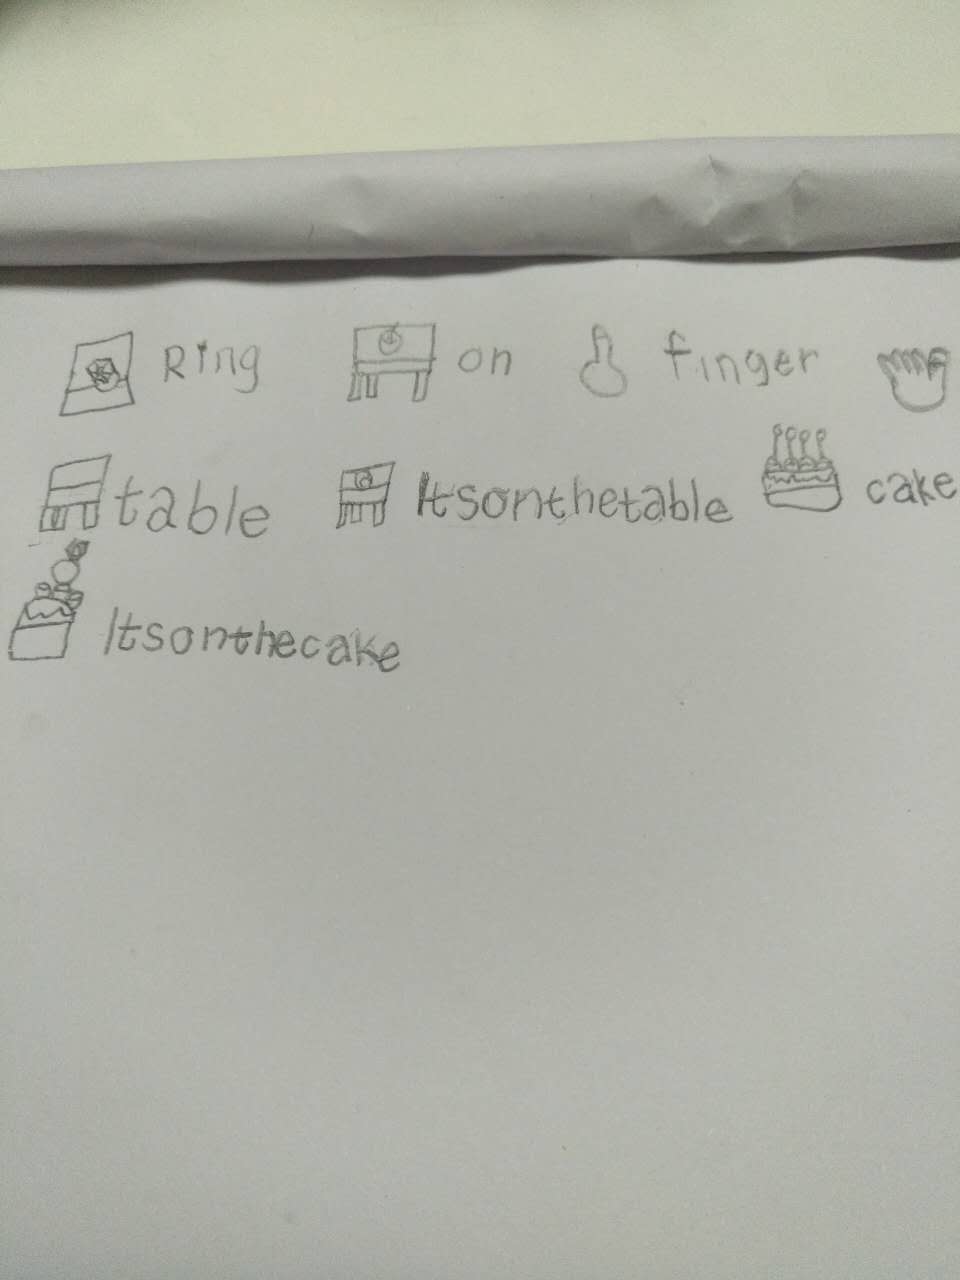 Ring on finger
table Itsonthetable cake
Itsonthecake